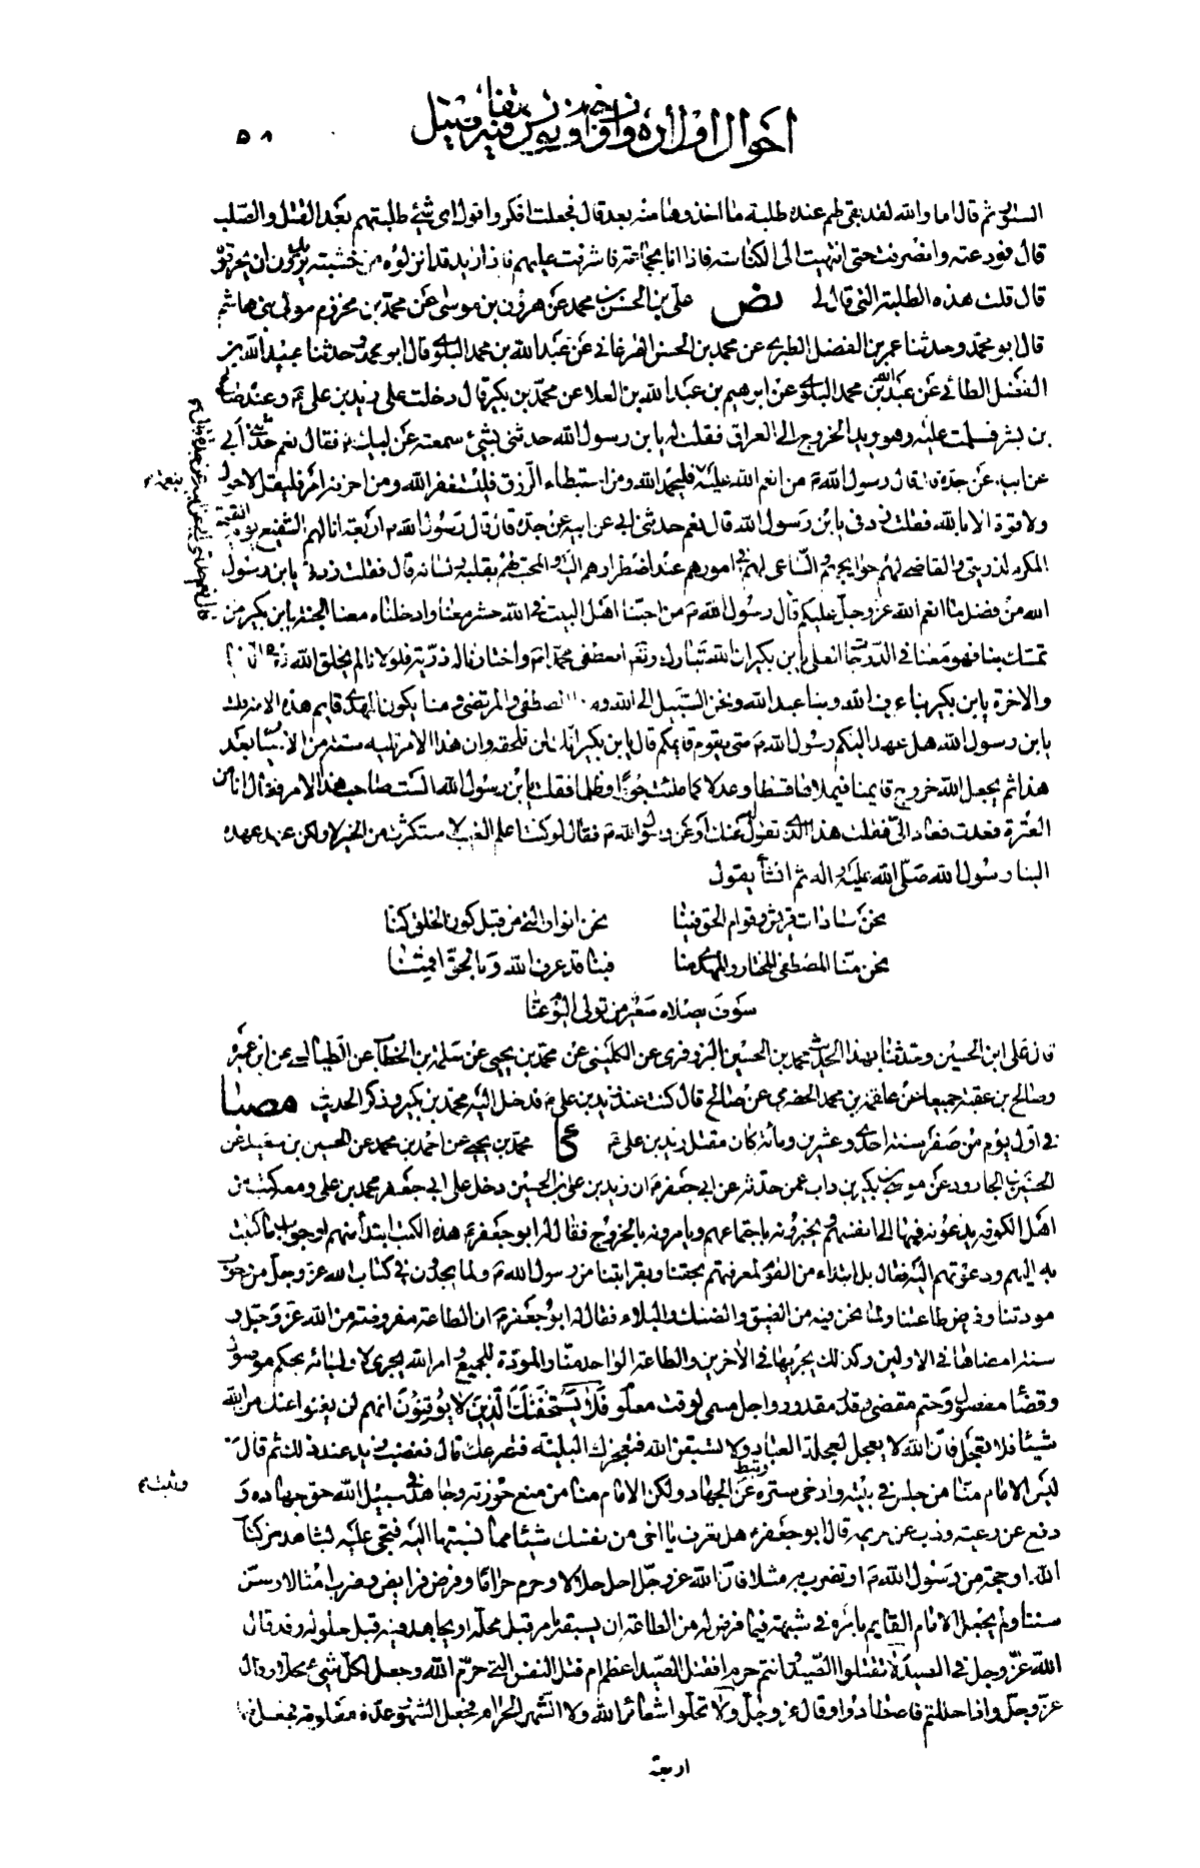 ٥٨
احوال اولاده وازواجه
السائق ثم قال اما والله لقد بقى لهم عنده طلبة ما اخذوها منه بعد قال فجعلت افكر واقول اى شئ طلبتهم بعد القتل والصلب
قال فودعته وانصرفت حتى انتهيت الى الكناسة فاذا انا بجماعة فاشرفت عليهم فاذا زيد قد انزلوه من خشبته يريدون ان يحرقوه
قال قلت هذه الطلبة التى قال لى نص على بن الحسن بن محمد عن هرون بن موسى عن محمد بن مخزوم مولى بنى هاشم
قال ابو محمد وحدثنا عمر بن الفضل الطبرى عن محمد بن الحسن الفرغانى عن عبد الله بن محمد البلوى قال ابو محمد وحدثنا عبيد الله بن
الفضل الطائى عن عبد الله بن محمد البلوى عن ابرهيم بن عبد الله بن العلا عن محمد بن بكير قال دخلت على زيد بن على ع وعنده صالح
بن بشر فسلمت عليه وهو يريد الخروج الى العراق فقلت له يا بن رسول الله حدثنى بشئ سمعته عن ابيك ع فقال نعم حدثنى ابى
عن ابيه عن جده قال قال رسول الله ص من انعم الله عليه فليحمد الله ومن استبطاء الرزق فليستغفر الله ومن احزنه امر فليقل لا حول
بنعمة
ولا قوة الا بالله فقلت زدنى يا بن رسول الله قال نعم حدثنى ابى عن ابيه عن جده قال قال رسول الله ص اربعة انا لهم الشفيع يوم القيمة
المكرم لذريتى والقاضى لهم حوايجهم والساعى لهم فى امورهم عند اضطرارهم اليه والمحب لهم بقلبه ولسانه قال فقلت زدنى يا بن رسول
الله من فضل ما انعم الله عز وجل عليكم قال رسول الله ص من احبنا اهل البيت فى الله حشر معنا وادخلناه معنا الجنة يا بن بكير من
تمسك بنا فهو معنا فى الدرجات العلى يا بن بكير ان الله تبارك وتعالى اصطفى محمدا ص واختارنا له ذرية فلولانا لم يخلق الله
والاخرة يا بن بكير بنا عرف الله وبنا عبد الله ونحن السبيل الى الله ومنا المصطفى والمرتضى ومنا يكون المهدى قايم هذه الامة قلت
يا بن رسول الله هل عهد اليكم رسول الله ص متى يقوم قايمكم قال يا بن بكير انك لن تلحقه وان هذا الامر تليه ستة من الاوصياء بعد
هذا ثم يجعل الله خروج قايمنا فيملاها قسطا وعدلا كما ملئت جورا وظلما فقلت يا بن رسول الله الست صاحب هذا الامر فقال انا من
العترة فعدت فعاد الى فقلت هذا الذى تقوله عنك او عن رسول الله ص فقال لو كنت اعلم الغيب لاستكثرت من الخير لا ولكن عهد عهده
الينا رسول الله صلى الله عليه واله ثم انشأ يقول
نحن سادات قريش وقوام الحق فينا نحن انوار التى من قبل كون الخلق كنا
نحن منا المصطفى المختار والمهدى منا فبنا قد عرف الله وبالحق اقمنا
سوف يصلاه سعير من تولى اليوم عنا
قال على ابن الحسين وحدثنا بهذا الحديث محمد بن الحسين البزوفرى عن الكلينى عن محمد بن يحيى عن سلمة بن الخطاب عن الطيالسى عن ابن عميرة
وصالح بن عقبة جميعا عن علقمة بن محمد الحضرمى عن صالح قال كنت عند زيد بن على ع فدخل اليه محمد بن بكير وذكر الحديث مصبا
فى اول يوم من صفر سنة احدى وعشرين ومائة كان مقتل زيد بن على ع كا محمد بن يحيى عن احمد بن محمد عن الحسين بن سعيد عن
الحسين بن الجارود عن موسى بن بكير بن داب عمن حدثه عن ابى جعفر ع ان زيد بن على بن الحسين دخل على ابى جعفر محمد بن على ومعه كتب من
اهل الكوفة يدعونه فيها الى انفسهم ويخبرونه باجتماعهم ويامرونه بالخروج فقال له ابو جعفر ع هذه الكتب ابتداء منهم او جواب ما كتبت
به اليهم ودعوتهم اليه فقال بل ابتداء من القوم لمعرفتهم بحقنا وبقرابتنا من رسول الله ص ولما يجدون فى كتاب الله عز وجل من وجوب
مودتنا وفرض طاعتنا ولما نحن فيه من الضيق والضنك والبلاء فقال له ابو جعفر ع ان الطاعة مفروضة من الله عز وجل و
سنة امضاها فى الاولين وكذلك يجريها فى الاخرين والطاعة لواحد منا والمودة للجميع وامر الله يجرى لاوليائه بحكم موصول
وقضاء مفصول وحتم مقضى وقدر مقدور واجل مسمى لوقت معلوم فلا يستخفنك الذين لا يوقنون انهم لن يغنوا عنك من الله
شيئا فلا تعجل فان الله لا يعجل لعجلة العباد ولا تسبقن الله فتعجزك البلية فتصرعك قال فغضب زيد عند ذلك ثم قال
ليس الامام منا من جلس فى بيته وارخى ستره وثبط عن الجهاد ولكن الامام منا من منع حوزته وجاهد فى سبيل الله حق جهاده و
دفع عن رعيته وذب عن حريمه قال ابو جعفر ع هل تعرف يا اخى من نفسك شيئا مما نسبتها اليه فتجئ عليه بشاهد من كتاب
الله او حجة من رسول الله ص او تضرب به مثلا فان الله عز وجل احل حلالا وحرم حراما وفرض فرايض وضرب امثالا وسن
سننا ولم يجعل الامام القايم بامره فى شبهة فيما فرض له من الطاعة ان يسبقه بامر قبل محله او يجاهد فيه قبل حلوله وقد قال
الله عز وجل فى الصيد لا تقتلوا الصيد وانتم حرم افقتل الصيد اعظم ام قتل النفس التى حرم الله وجعل لكل شئ محلا وقال
عز وجل واذا حللتم فاصطادوا وقال عز وجل ولا تحلوا شعائر الله ولا الشهر الحرام فجعل الشهور عدة معلومة فجعل منها
اربعة